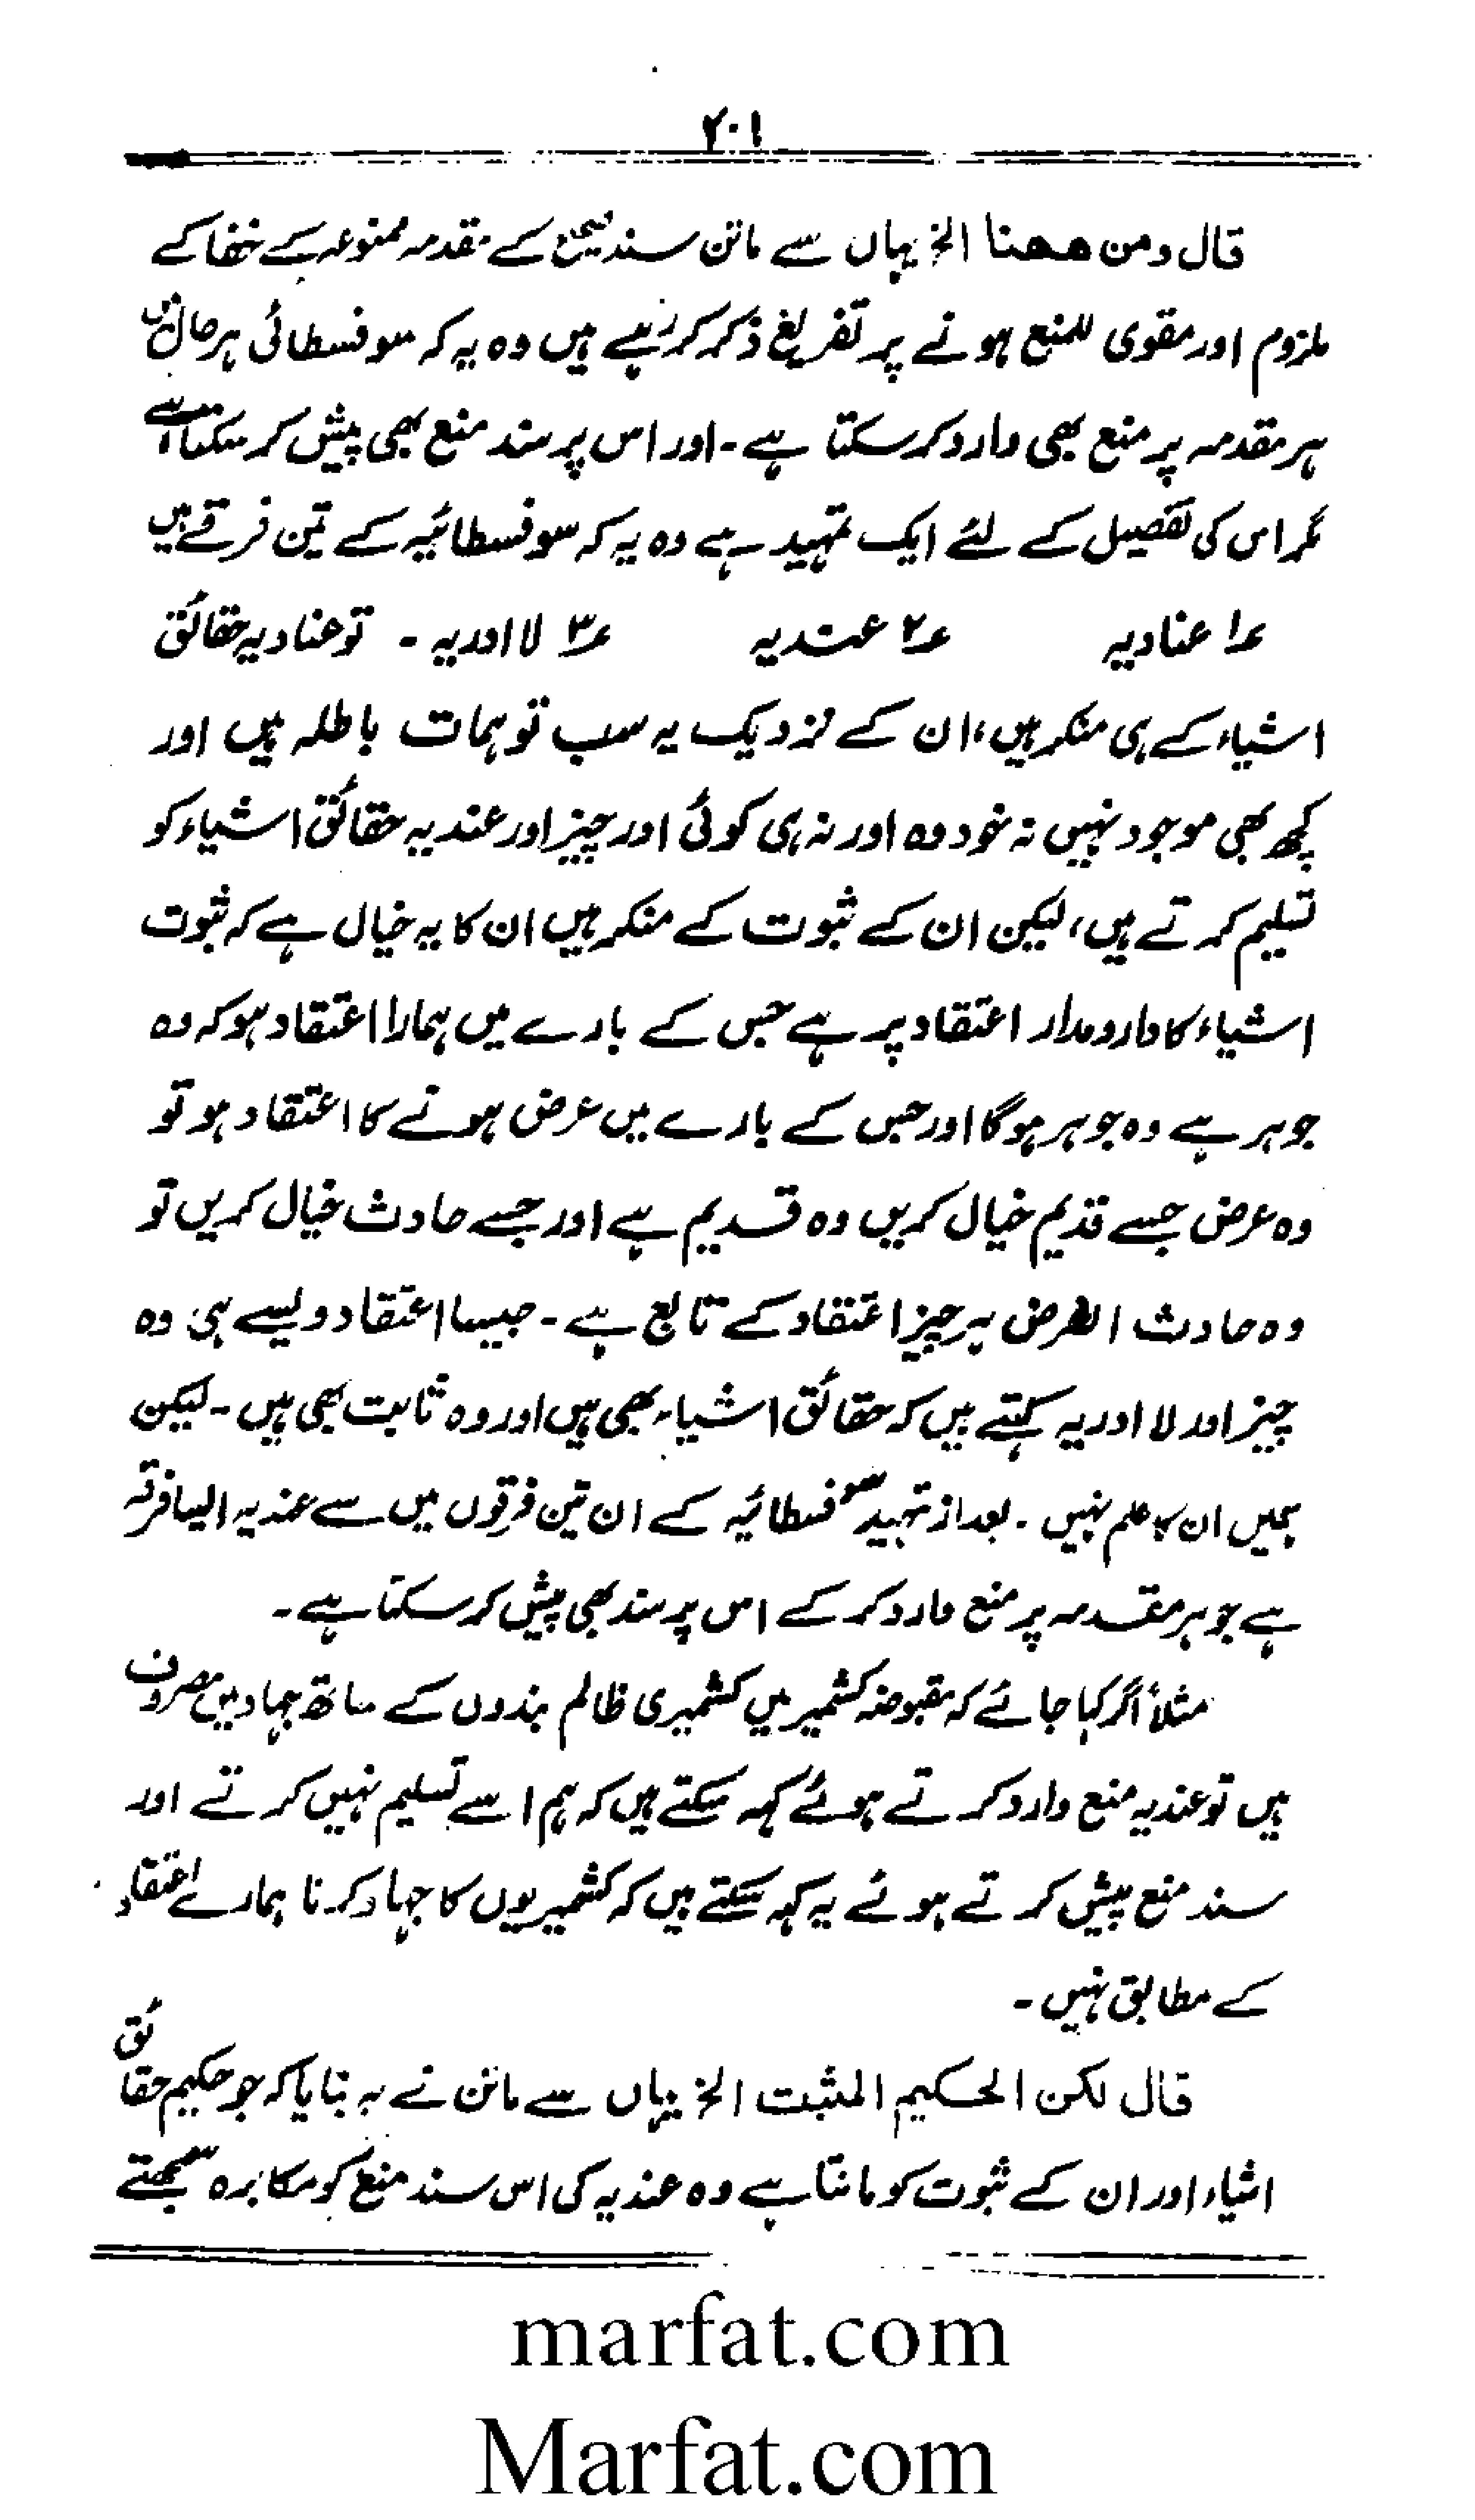 ۲۰۱
قال ومن ههنا الخ یہاں سے ماتن سند صحیح کے مقدمہ ممنوعہ کے خفا کے
ملزوم اور مقوی للمنع ہونے پر تفریع ذکر کر رہے ہیں وہ یہ کہ سوفسطائی ہر حال میں
ہر مقدمہ پر منع بھی وارد کر سکتا ہے۔ اور اس پر سند منع بھی پیش کر سکتا ہے
مگر اس کی تفصیل کے لئے ایک تمہید ہے وہ یہ کہ سوفسطائیہ کے تین فرقے ہیں
ع۱ عنادیہ ع۲ عندیہ ع۳ لا ادریہ ۔ تو عنادیہ حقائق
اشیاء کے ہی منکر ہیں، ان کے نزدیک یہ سب توہمات باطلہ ہیں اور
کچھ بھی موجود نہیں نہ خود وہ اور نہ ہی کوئی اور چیز اور عندیہ حقائق اشیاء کو
تسلیم کرتے ہیں، لیکن ان کے ثبوت کے منکر ہیں ان کا یہ خیال ہے کہ ثبوت
اشیاء کا دارومدار اعتقاد پر ہے جس کے بارے میں ہمارا اعتقاد ہو کہ وہ
جوہر ہے وہ جوہر ہوگا اور جس کے بارے میں عرض ہونے کا اعتقاد ہو تو
وہ عرض جسے قدیم خیال کریں وہ قدیم ہے اور جسے حادث خیال کریں تو
وہ حادث الغرض ہر چیز اعتقاد کے تابع ہے۔ جیسا اعتقاد ویسے ہی وہ
چیز اور لا ادریہ کہتے ہیں کہ حقائق اشیاء بھی ہیں اور وہ ثابت بھی ہیں۔ لیکن
ہمیں ان کا علم نہیں ۔ بعد از تمہید سوفسطائیہ کے ان تین فرقوں میں سے عندیہ ایسا فرقہ
ہے جو ہر مقدمہ پر منع وارد کر کے اس پر سند بھی پیش کر سکتا ہے۔
مثلاً اگر کہا جائے کہ مقبوضہ کشمیر میں کشمیری ظالم ہندوں کے ساتھ جہاد میں مصروف
ہیں تو عندیہ منع وارد کرتے ہوئے کہہ سکتے ہیں کہ ہم اسے تسلیم نہیں کرتے اور
سند منع پیش کرتے ہوئے یہ کہہ سکتے ہیں کہ کشمیریوں کا جہاد کرنا ہمارے اعتقاد
کے مطابق نہیں ۔
قال لكن الحكيم المثبت الخ یہاں سے ماتن نے یہ بتایا کہ جو حکیم حقائق
اشیاء اور ان کے ثبوت کو مانتا ہے وہ عندیہ کی اس سند منع کو مکابرہ سمجھتے
marfat.com
Marfat.com